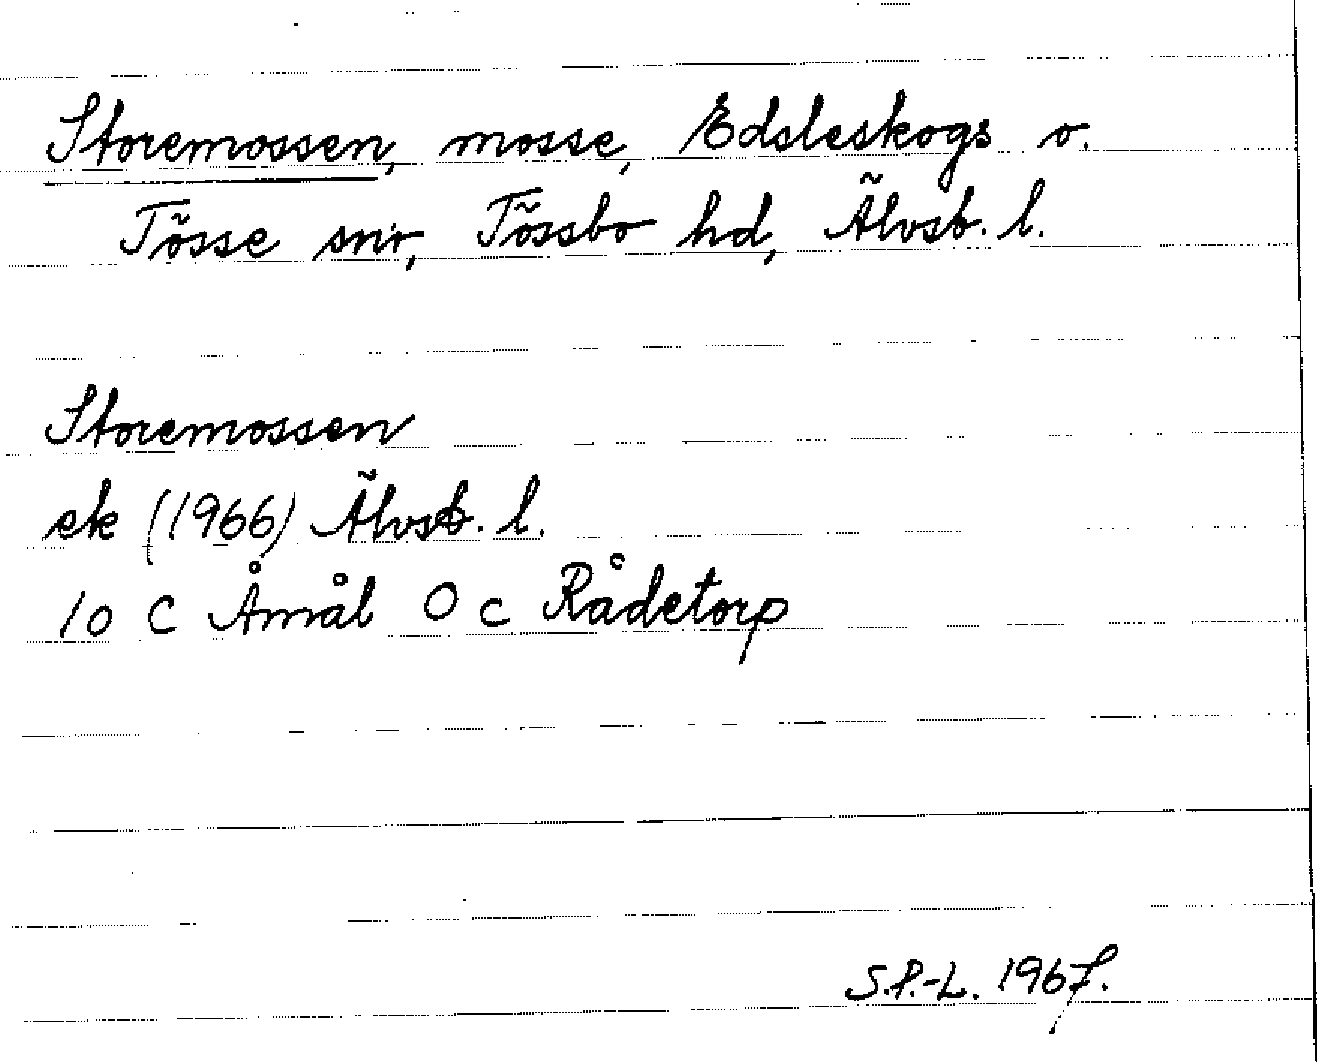 Storemossen, mosse, Edsleskogs o.
Tösse snr, Tössbo hd, Älvsb. l.
Storemossen
ek (1966) Älvsb. l.
10 C Åmål O c Rådetorp
S.P.-L. 1967.